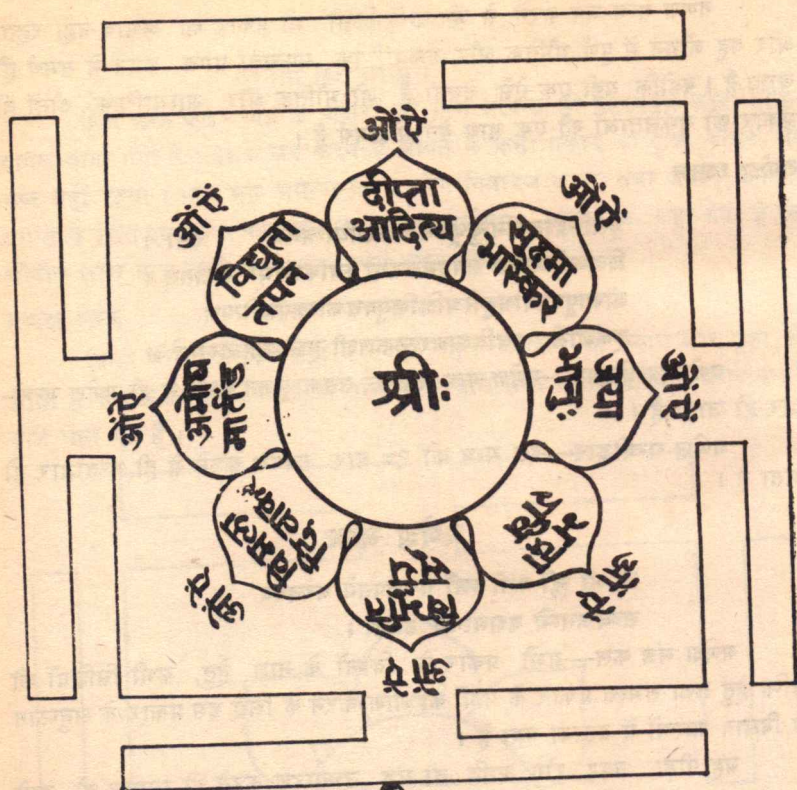 ओंऐं
दीप्ता
आदित्य
ओंऐं
सूक्ष्मा
भास्कर
ओंऐं
जया
भानुः
ओंऐं
भद्रा
रवि
ओंऐं
विभूति
सूर्य
ओंऐं
विमला
दिवाकर
ओंऐं
अमोघ
मार्तंड
ओंऐं
विद्युता
तपन